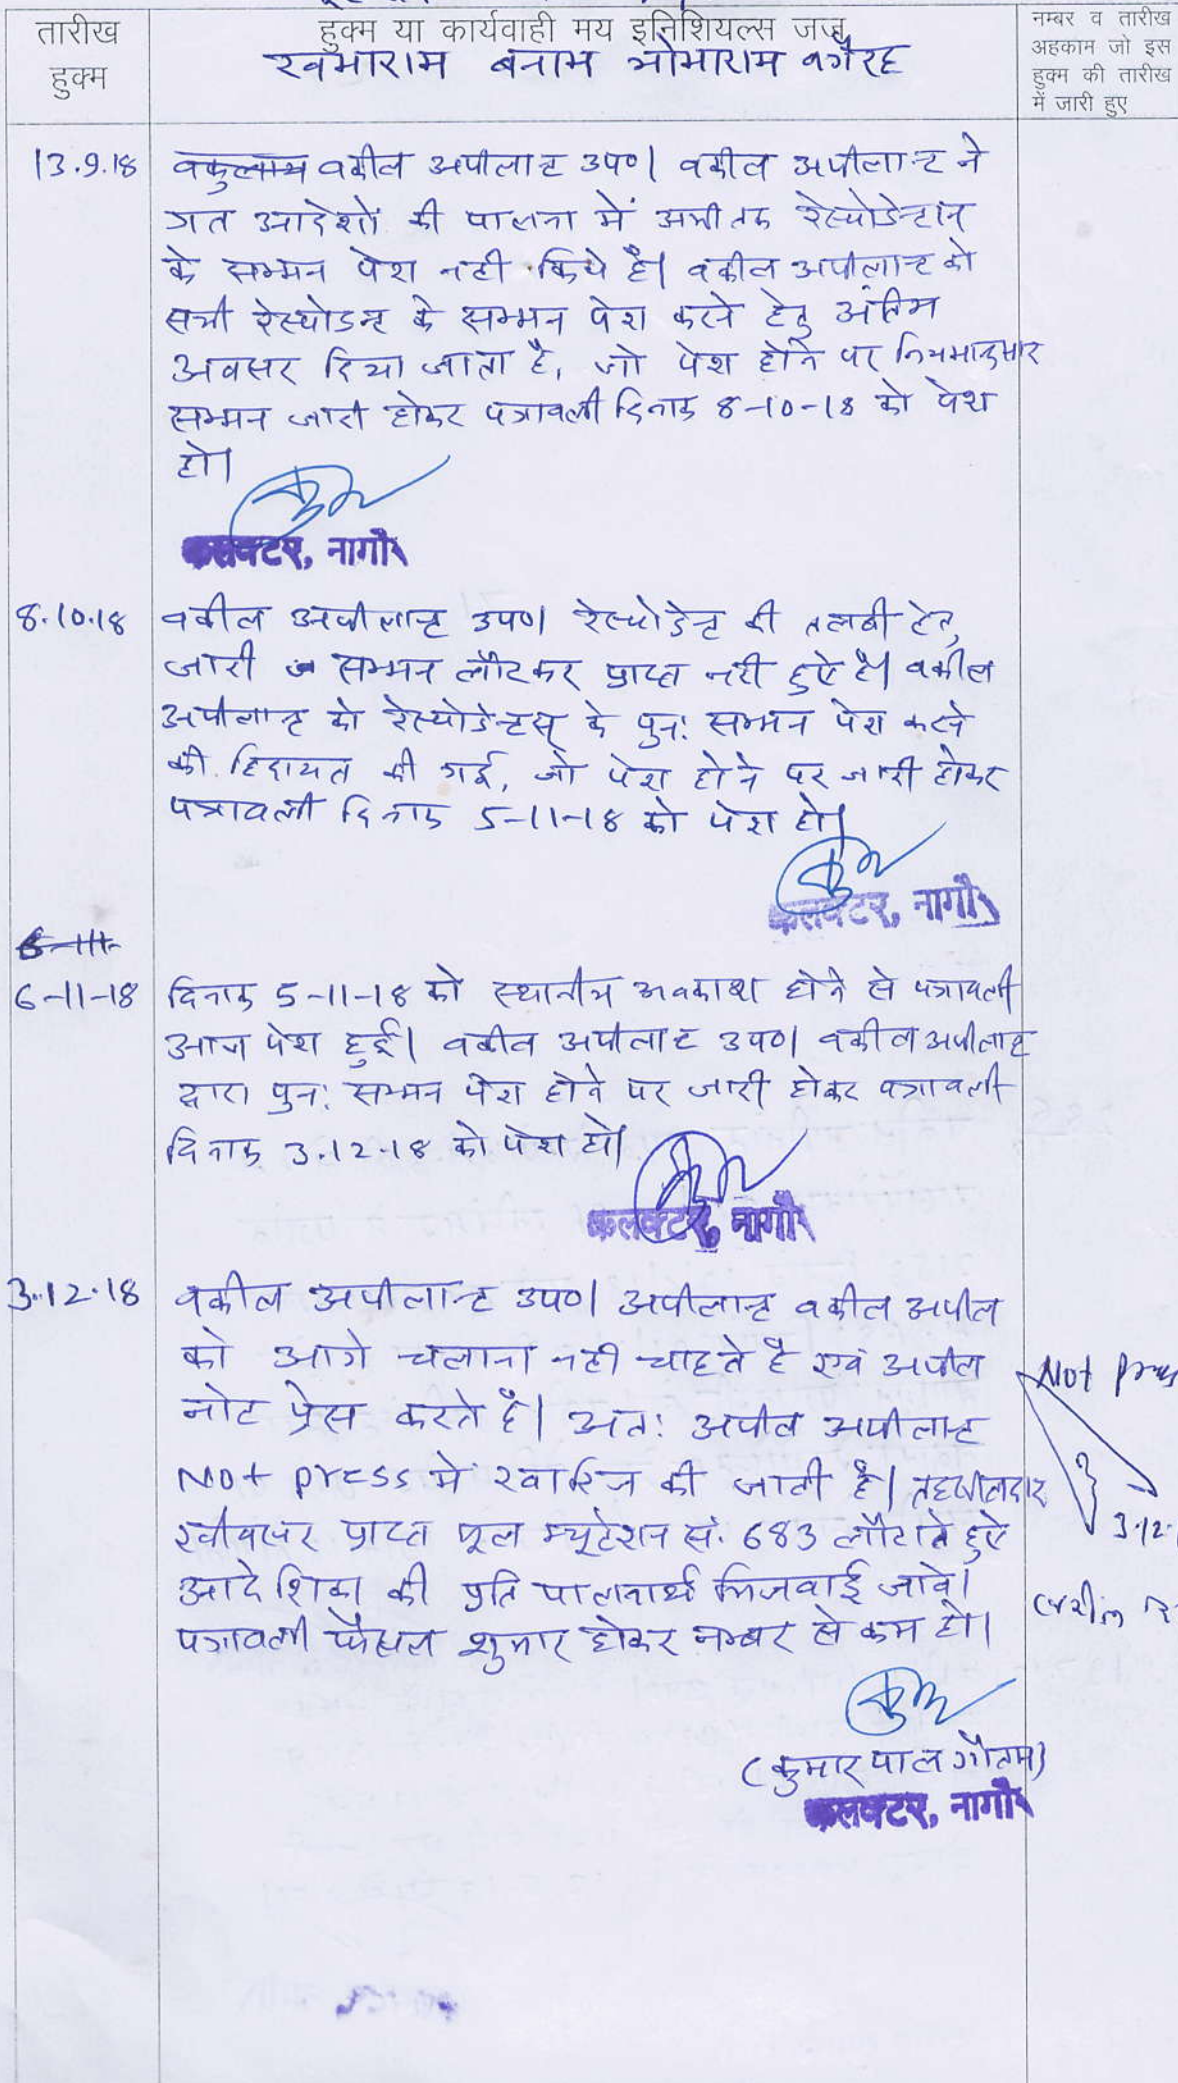 तारीख
हुक्म
हुक्म या कार्यवाही मय इनिशियल्स जज
नम्बर व तारीख
अहकाम जो इस
हुक्म की तारीख
में जारी हुए
बनाम भोमाराम वगैरह
13.9.18
वकील अपीलान्ट उप०। वकील अपीलान्ट ने
गत आदेशों की पालना में अभी तक रेस्पोडेन्टान
के सम्मन पेश नही किये है। वकील अपीलान्ट को
सभी रेस्पोडेन्ट के सम्मन पेश करने हेतु अंतिम
अवसर दिया जाता है, जो पेश होने पर नियमानुसार
सम्मन जारी होकर पत्रावली दिनांक 8-10-18 को पेश
हो।
कलक्टर, नागौर
8.10.18
वकील अपीलान्ट उप०। रेस्पोडेन्ट की तलबी हेतु
जारी सम्मन लौटकर प्राप्त नही हुऐ है। वकील
अपीलान्ट को रेस्पोडेन्टस् के पुन: सम्मन पेश करने
की हिदायत की गई, जो पेश होने पर जारी होकर
पत्रावली दिनांक 5-11-18 को पेश हो।
कलक्टर, नागौर
6-11-18
दिनांक 5-11-18 को स्थानीय अवकाश होने से पत्रावली
आज पेश हुई। वकील अपीलान्ट उप०। वकील अपीलान्ट
द्वारा पुन: सम्मन पेश होने पर जारी होकर पत्रावली
दिनांक 3.12.18 को पेश हो।
कलक्टर, नागौर
3.12.18
वकील अपीलान्ट उप०। अपीलान्ट वकील अपील
को आगे चलाना नही चाहते है एवं अपील
नोट प्रेस करते है। अत: अपील अपीलान्ट
Not press में खारिज की जाती है। तहसीलदार
खींवसर प्राप्त मूल म्यूटेशन सं. 683 लौटाते हुऐ
आदेशिका की प्रति पालनार्थ भिजवाई जावे।
पत्रावली फैसल शुमार होकर नम्बर से कम हो।
Not press
3.12.
(कुमार पाल गौतम)
कलक्टर, नागौर